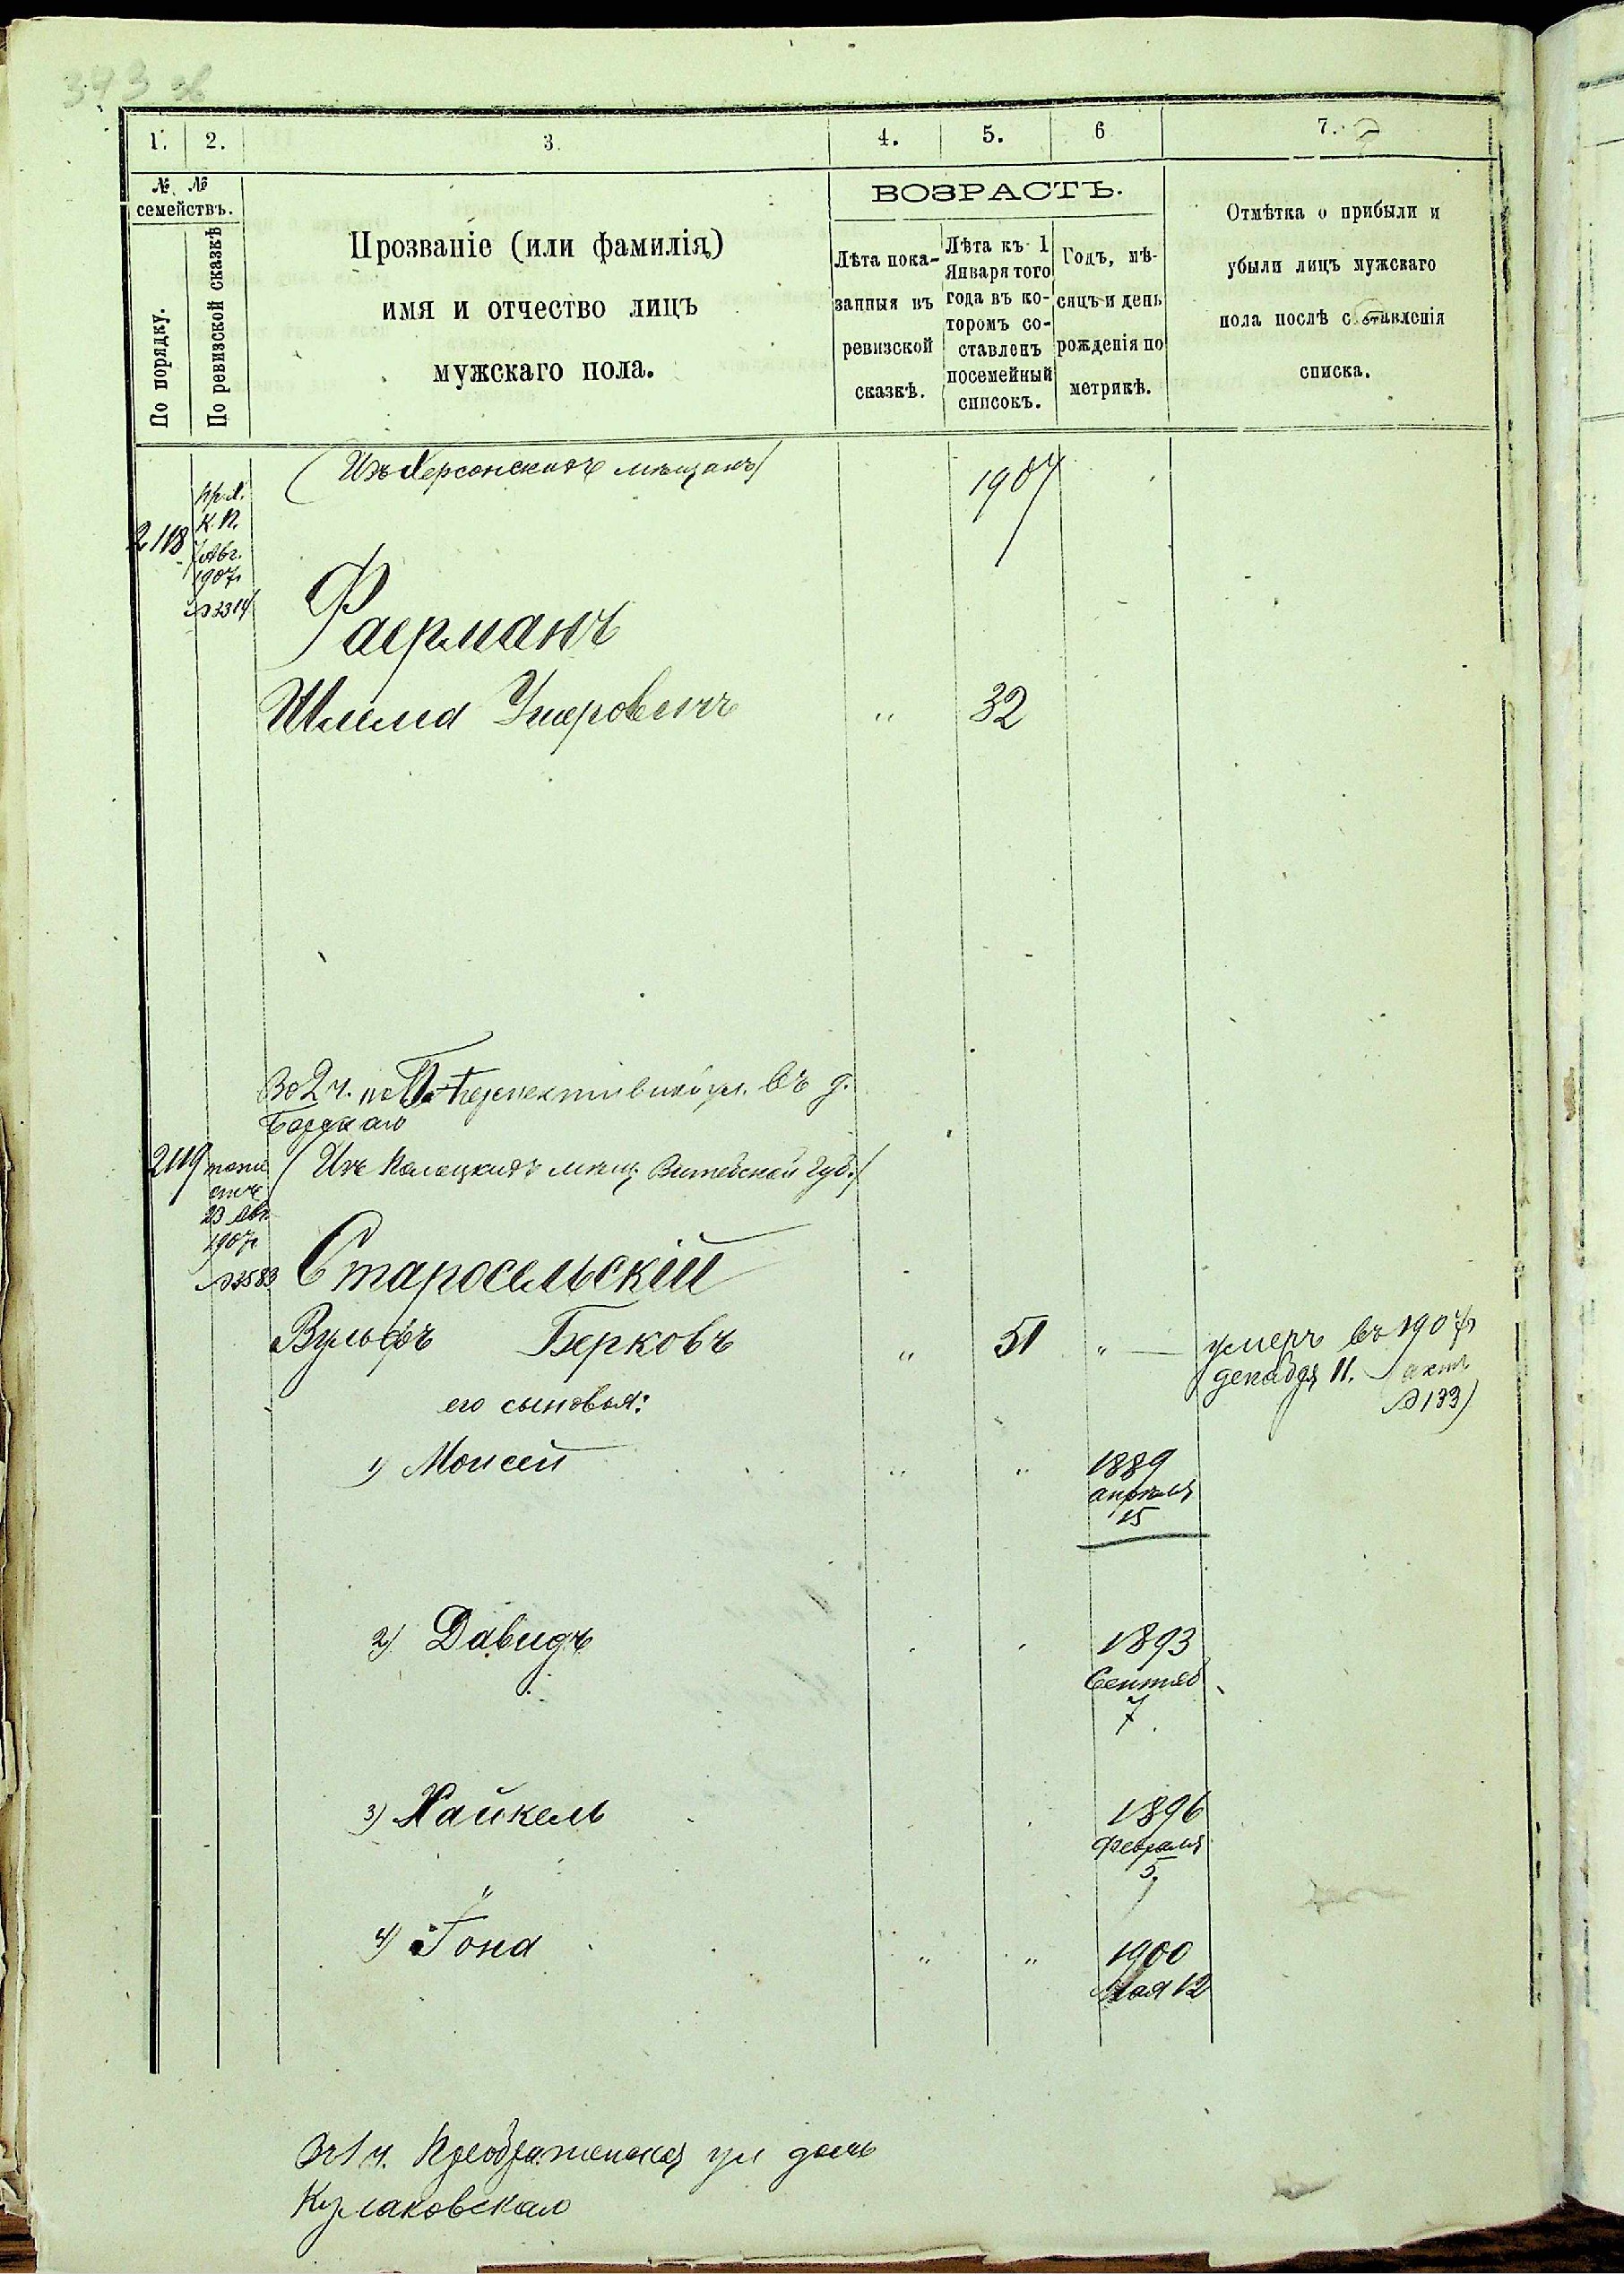 373 об
1. 2. 3. 4. 5. 6 7.
№ №
семействъ.
По порядку.
По ревизской сказкѣ
Прозваніе (или фамилія)
имя и отчество лицъ
мужскаго пола.
ВОЗРАСТЪ.
Лѣта пока-
занныя въ
ревизской
сказкѣ.
Лѣта къ 1
Января того
года въ ко-
торомъ со-
ставленъ
посемейный
списокъ.
Годъ, мѣ-
сяцъ и день
рожденія по
метрикѣ.
Отмѣтка о прибыли и
убыли лицъ мужскаго
пола послѣ составленія
списка.
(Изъ Херсонскихъ мѣщанъ) 1907
2118
К. П.
Авг.
1907
№ 2314
Фаерманъ
Шлема Ушеровичъ " 32
Во 2 ч. по Перспективной ул. въ д.
2119 (Изъ Полоцкихъ мѣщ. Витебской губ.)
23 Авг.
1907
№ 2583
Старосельскій
Вульфъ Берковъ " 51 " — умеръ въ 1907
декабря 11. актъ
№ 133)
его сыновья:
1) Моисей " " 1889
апрѣля
15
2) Давидъ 1893
Сентяб
7
3) Хайкель 1896
Февраля
5.
4) Іона " " 1900
Мая 12
Въ 1 ч. Преображенская ул домъ
Кулаковскаго